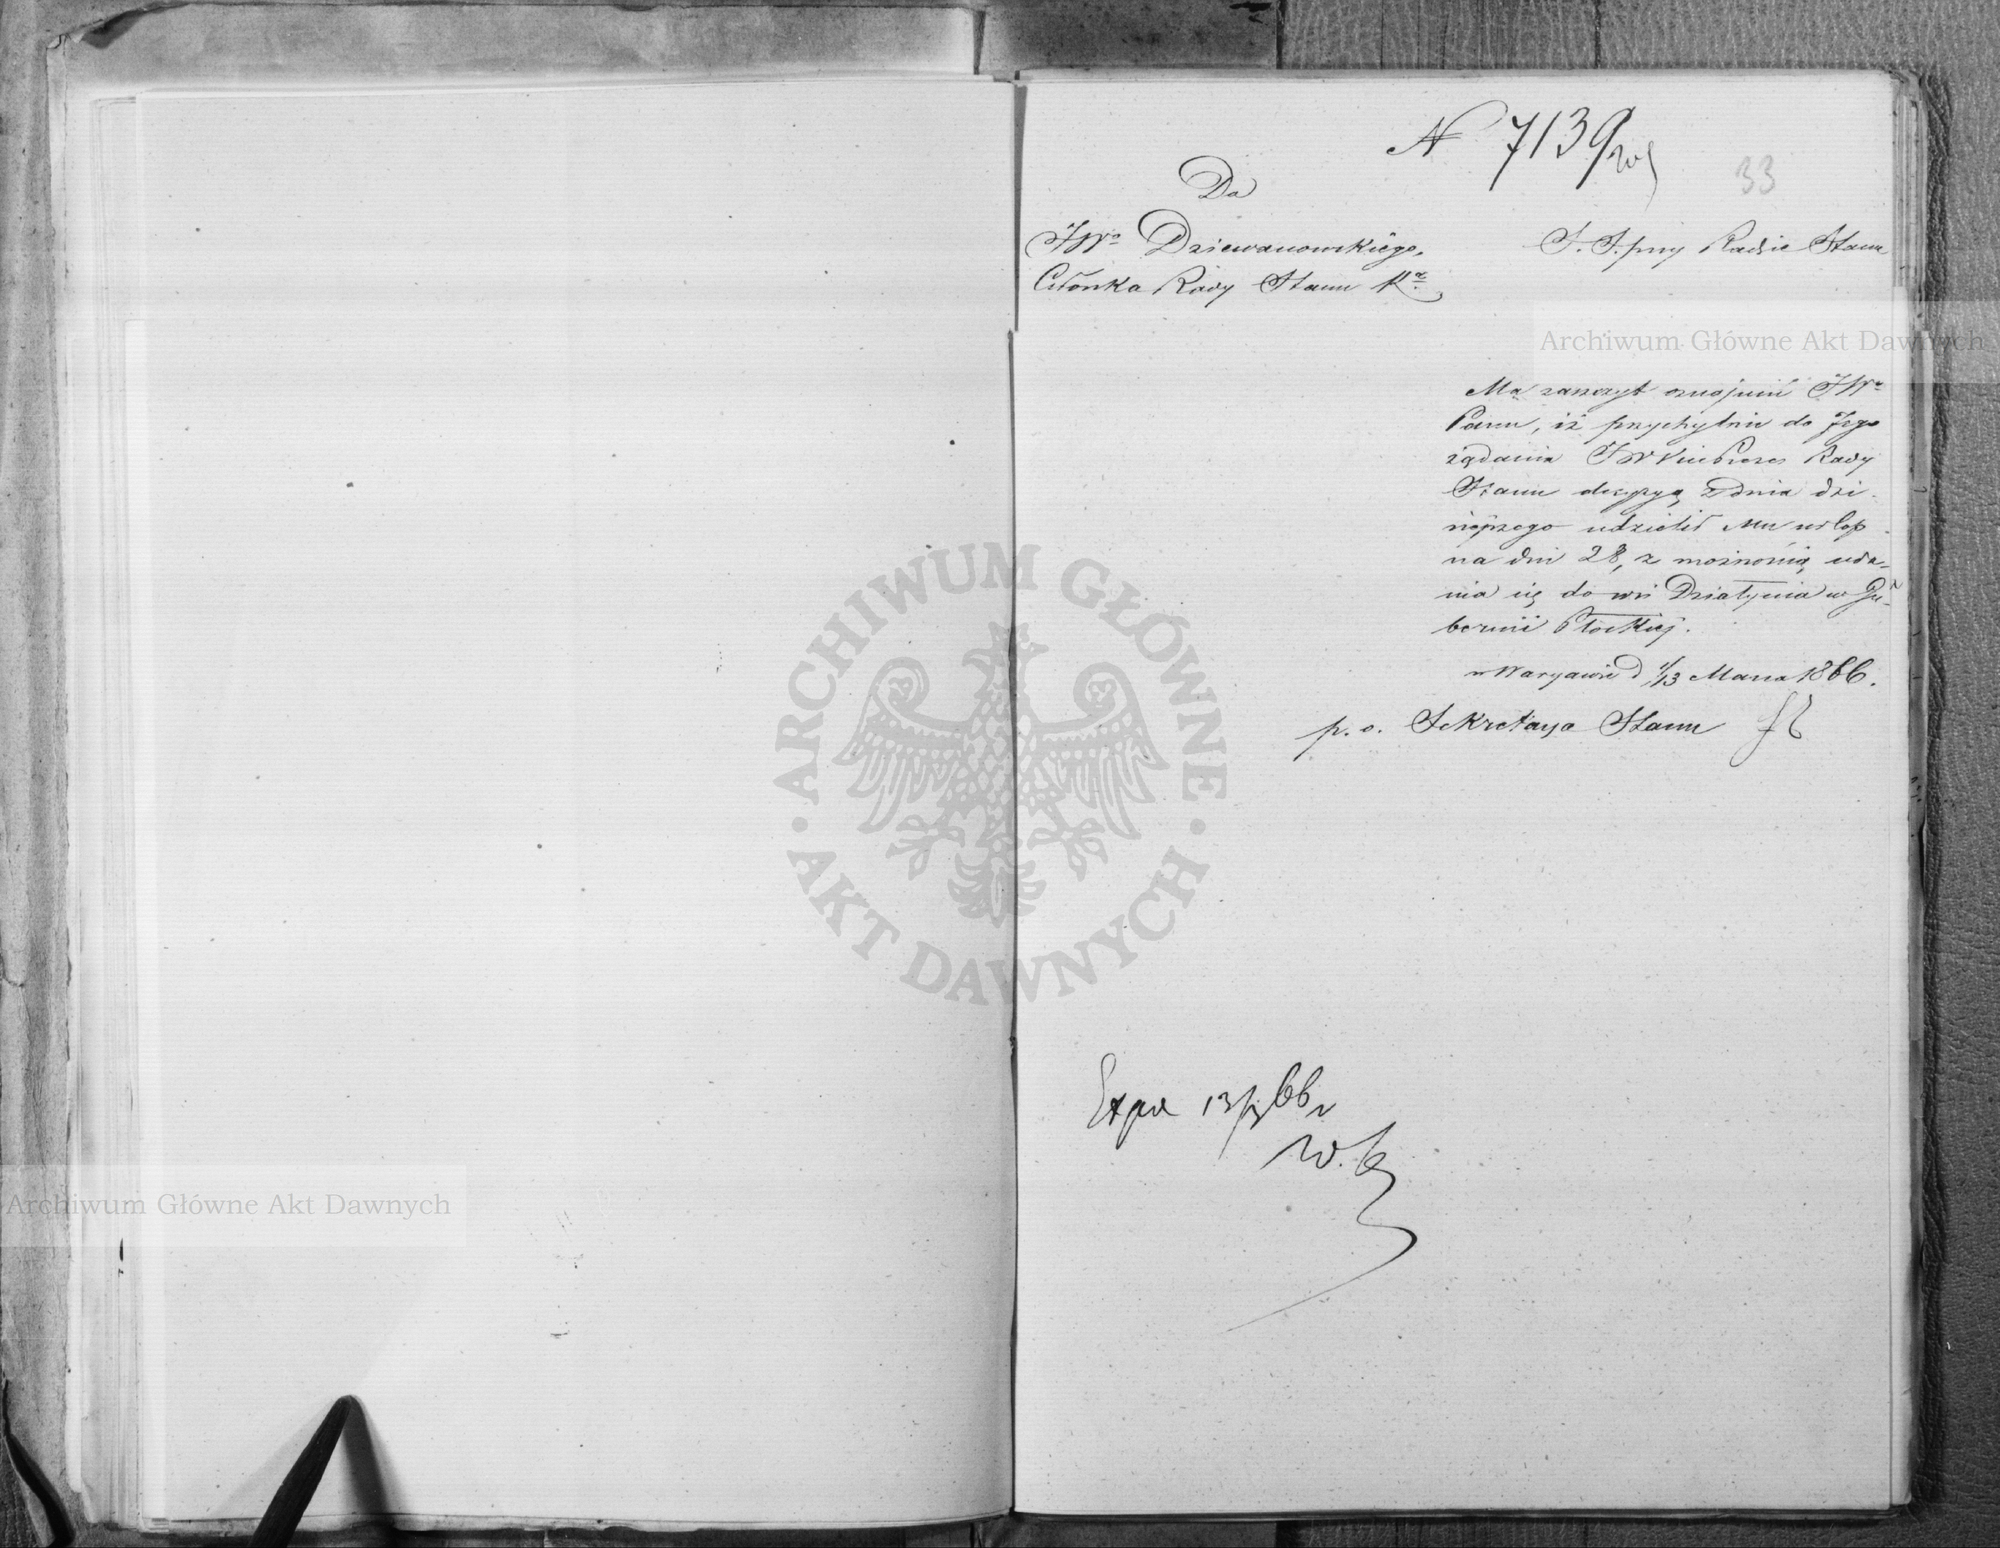 N 7139
33
Do
JWo Dziewanowskiego,
Członka Rady Stanu Ka
S. S. przy Radzie Stanu
Archiwum Główne Akt Dawnych
Ma zaszczyt oznajmić JWu
Panu, iż przychylnie do Jego
żądania JW VicePrezes Rady
Stanu decyzyą z dnia dzi-
siejszego udzielił Mu urlop
na dni 28, z możnością uda-
nia się do wsi Działynia w Gu-
bernii Płockiej.
w Warszawie d 1/13 Marca 1866.
p. o. Sekretarza Stanu
ARCHIWUM GŁÓWNE
· AKT DAWNYCH ·
Exp 13/3 66
W.
Archiwum Główne Akt Dawnych